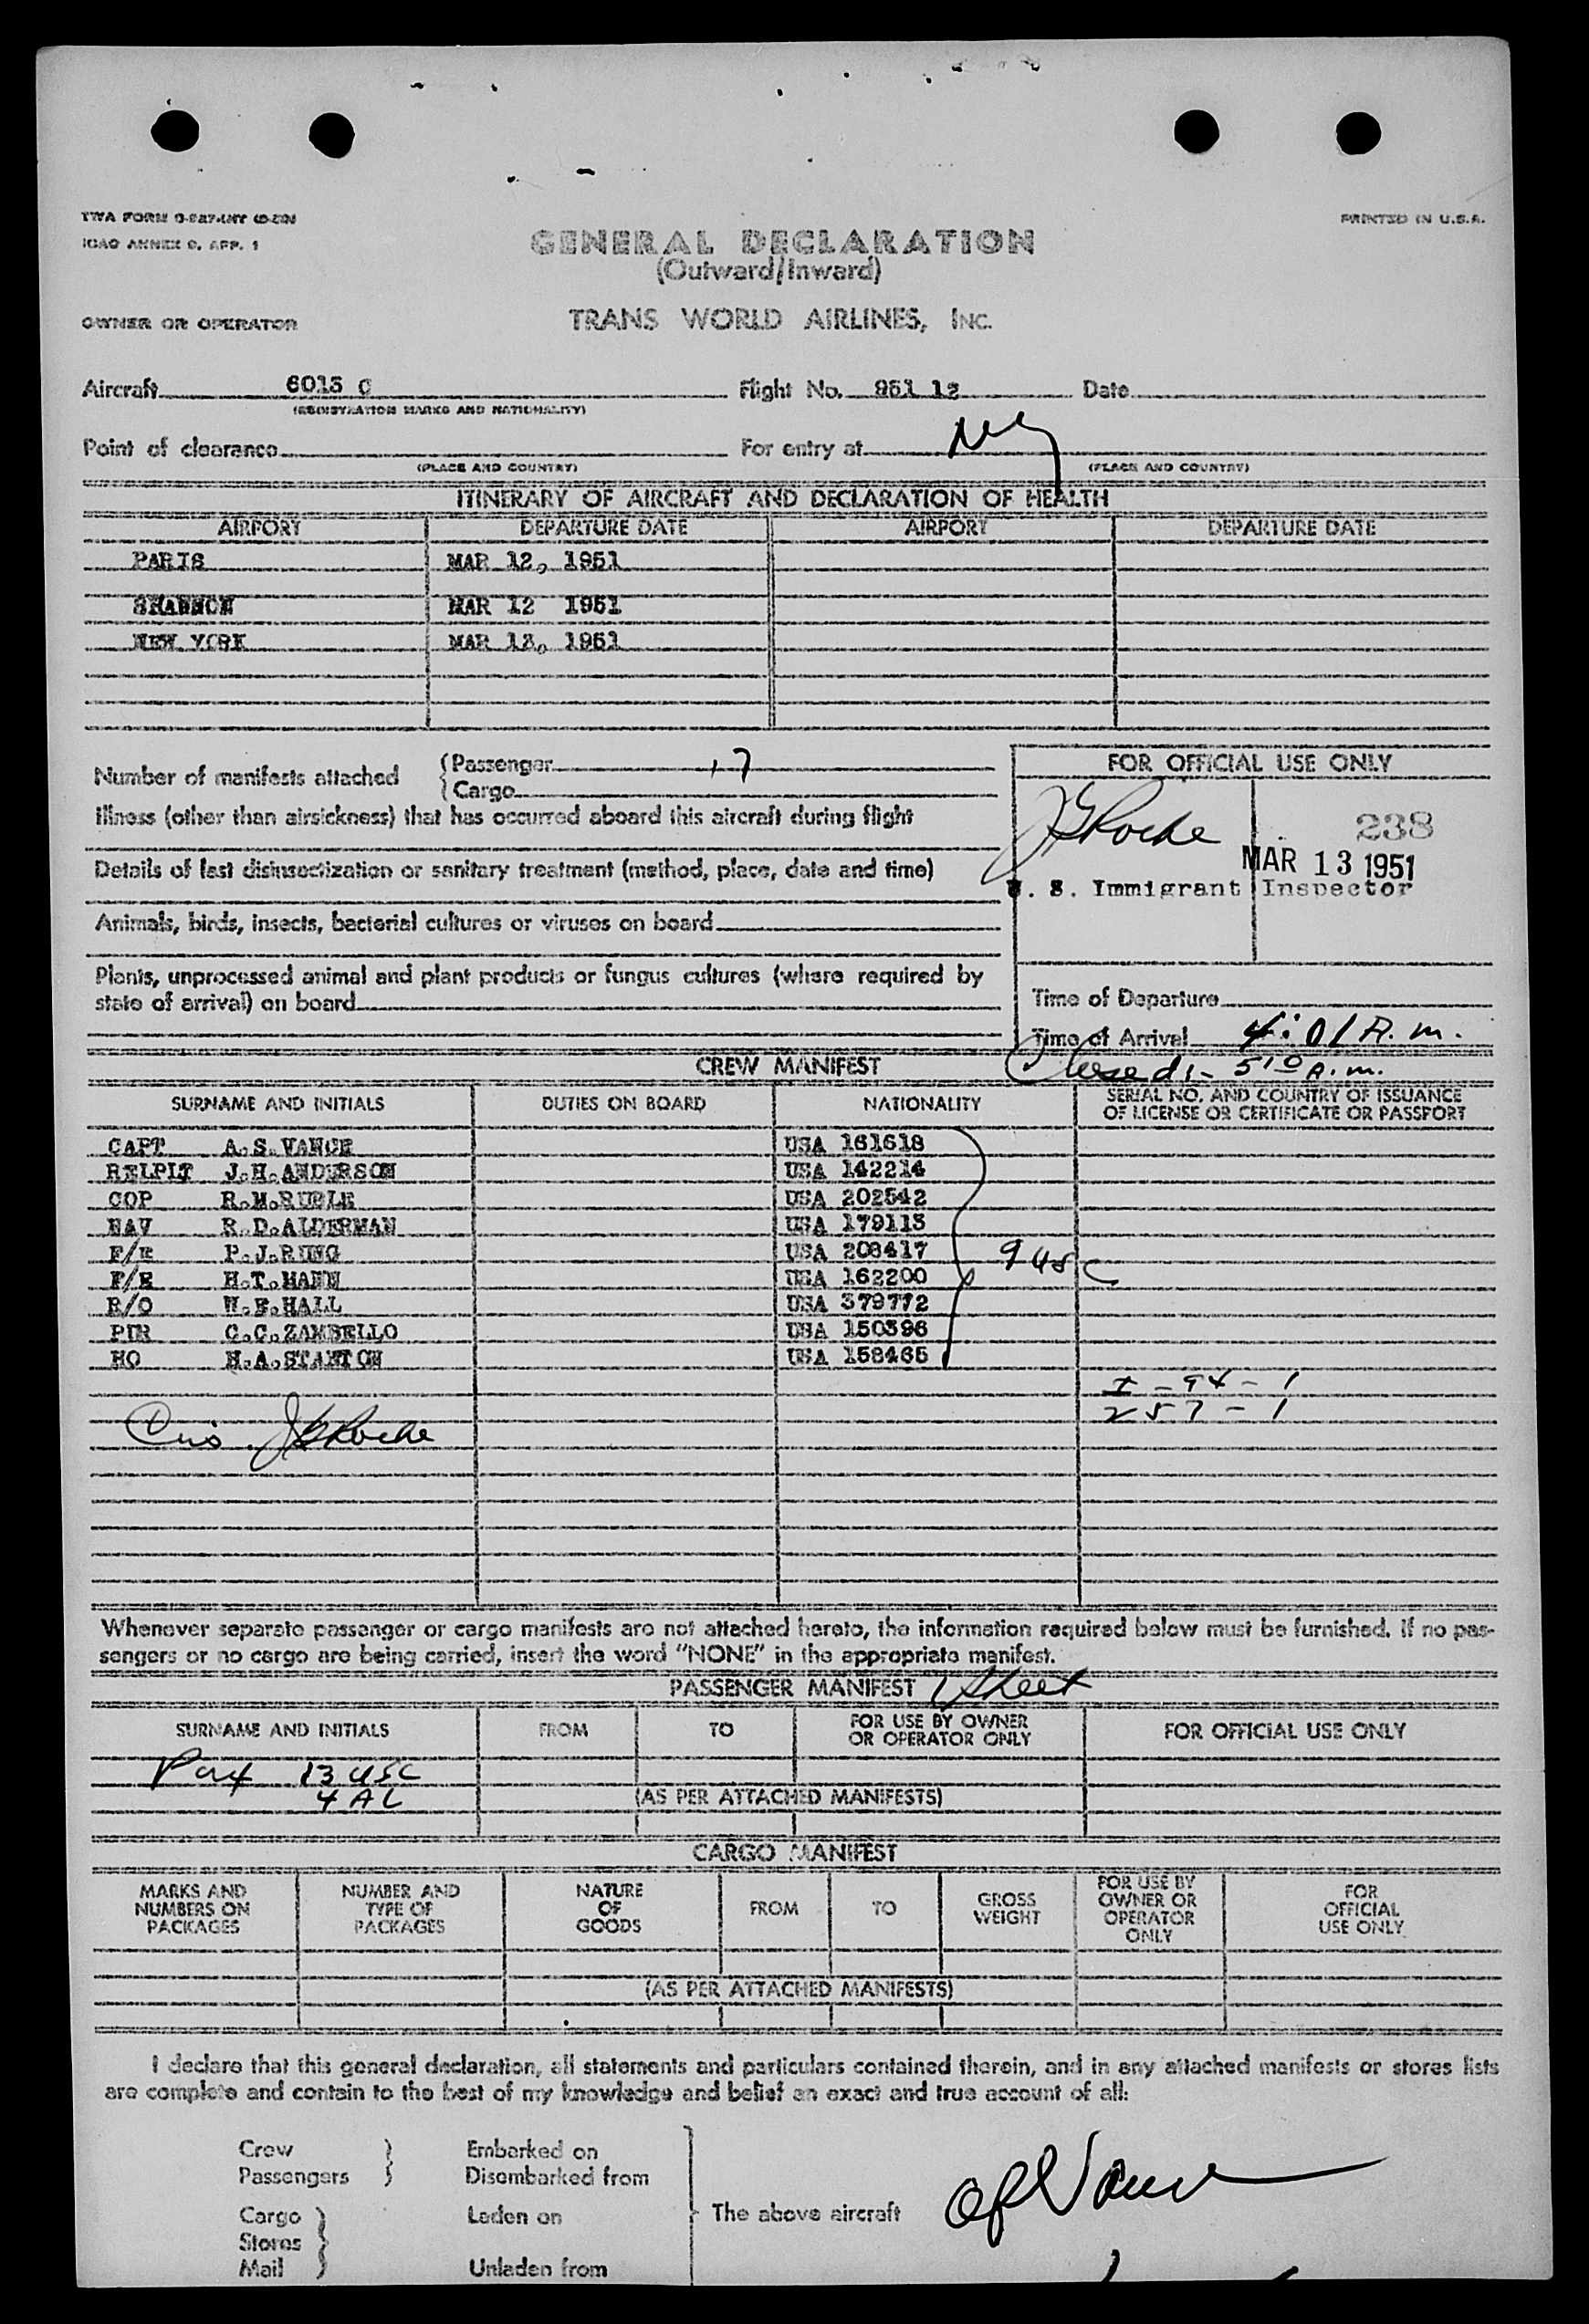 ICAO ANNEX 9, APP. 1
PRINTED IN U.S.A.
GENERAL DECLARATION
(Outward/Inward)
OWNER OR OPERATOR TRANS WORLD AIRLINES, INC.
Aircraft 6015 C Flight No. 951 12 Date
(REGISTRATION MARKS AND NATIONALITY)
Point of clearance For entry at NY
(PLACE AND COUNTRY) (PLACE AND COUNTRY)
ITINERARY OF AIRCRAFT AND DECLARATION OF HEALTH
AIRPORT DEPARTURE DATE AIRPORT DEPARTURE DATE
PARIS MAR 12, 1951
SHANNON MAR 12 1951
NEW YORK MAR 13, 1951
Number of manifests attached { Passenger 17
{ Cargo
Illness (other than airsickness) that has occurred aboard this aircraft during flight
Details of last disinsectization or sanitary treatment (method, place, date and time)
Animals, birds, insects, bacterial cultures or viruses on board
Plants, unprocessed animal and plant products or fungus cultures (where required by
state of arrival) on board
FOR OFFICIAL USE ONLY
JGRoche 238
MAR 13 1951
U. S. Immigrant Inspector
Time of Departure
Time of Arrival 4:01 A.m.
Closed:- 510 A.m.
CREW MANIFEST
SURNAME AND INITIALS DUTIES ON BOARD NATIONALITY SERIAL NO. AND COUNTRY OF ISSUANCE
OF LICENSE OR CERTIFICATE OR PASSPORT
CAPT A.S.VANCE USA 161618
RELPLT J.H.ANDERSON USA 142214
COP R.M.RUBLE USA 202542
NAV R.D.ALDERMAN USA 179113
F/E P.J.RUNG USA 208417
F/E H.T.MANN USA 162200
R/O W.F.HALL USA 379772
PUR C.C.ZAMBELLO USA 150396
HO N.A.STANTON USA 158465
9 USC
I-94-1
257-1
JGRoche
Whenever separate passenger or cargo manifests are not attached hereto, the information required below must be furnished. If no pas-
sengers or no cargo are being carried, insert the word "NONE" in the appropriate manifest.
PASSENGER MANIFEST 1 sheet
SURNAME AND INITIALS FROM TO FOR USE BY OWNER
OR OPERATOR ONLY FOR OFFICIAL USE ONLY
Pax 13 USC
4 AL
(AS PER ATTACHED MANIFESTS)
CARGO MANIFEST
MARKS AND
NUMBERS ON
PACKAGES
NUMBER AND
TYPE OF
PACKAGES
NATURE
OF
GOODS
FROM
TO
GROSS
WEIGHT
FOR USE BY
OWNER OR
OPERATOR
ONLY
FOR
OFFICIAL
USE ONLY
(AS PER ATTACHED MANIFESTS)
I declare that this general declaration, all statements and particulars contained therein, and in any attached manifests or stores lists
are complete and contain to the best of my knowledge and belief an exact and true account of all:
Crew } Embarked on
Passengers } Disembarked from
Cargo } Laden on The above aircraft
Stores
Mail } Unladen from